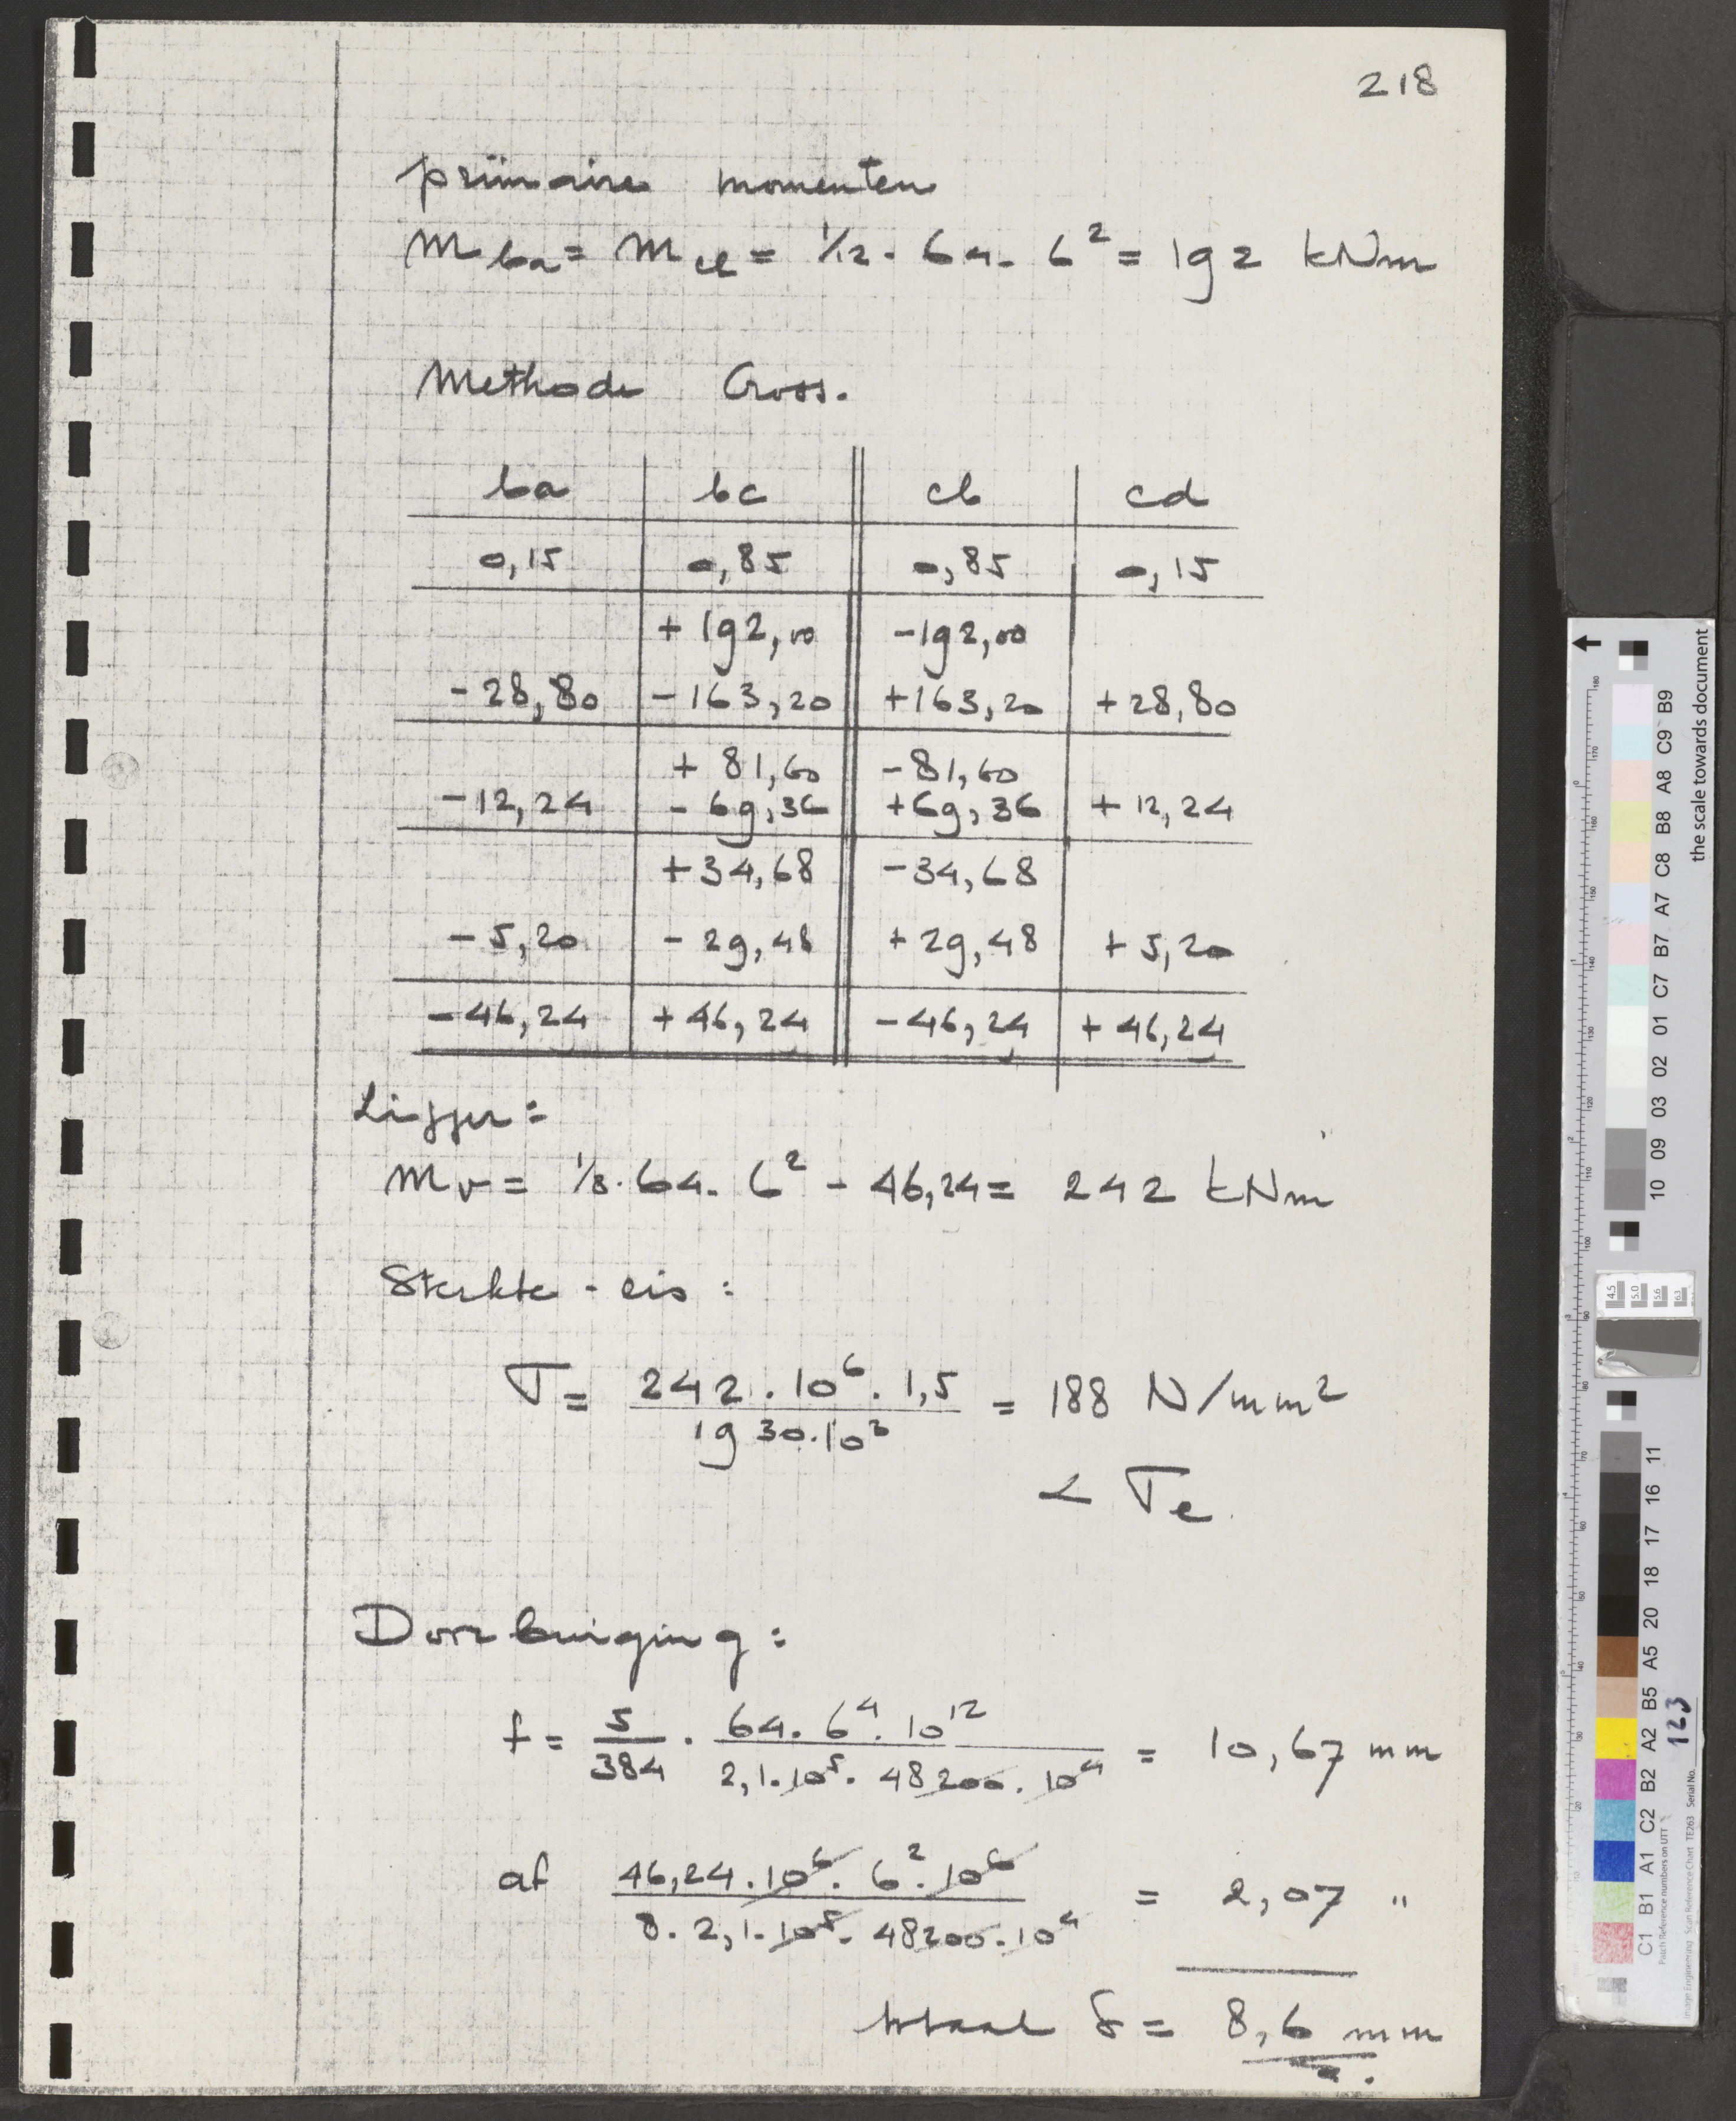 218
primaire momenten
M ba = M cl = 1/12 . 64 . 6² = 192 kNm
Methode Cross.
ba | bc || cb | cd
0,15 | 0,85 || 0,85 | 0,15
+ 192,00 || -192,00
- 28,80 | - 163,20 || +163,20 | + 28,80
+ 81,60 || - 81,60
- 12,24 | - 69,36 || +69,36 | + 12,24
+34,68 || -34,68
- 5,20 | - 29,48 || + 29,48 | + 5,20
- 46,24 | + 46,24 || - 46,24 | + 46,24
Ligger:
Mv = 1/8 . 64 . 6² - 46,24 = 242 kNm
Sterkte - eis :
σ = 242 . 10⁶ . 1,5 / 1930 . 10³ = 188 N/mm²
< σe
Doorbuiging :
f = 5/384 . 64 . 6⁴ . 10¹² / 2,1 . 10⁵ . 48200 . 10⁴ = 10,67 mm
af 46,24 . 10⁶ . 6² . 10⁶ / 8 . 2,1 . 10⁵ . 48200 . 10⁴ = 2,07 "
totaal δ = 8,6 mm
the scale towards document
C1 B1 A1 C2 B2 A2 B5 A5 20 18 17 16 11
10 09 03 02 01 C7 B7 A7 C8 B8 A8 C9 B9
Patch Reference numbers on UTT
Image Engineering Scan Reference Chart TE263 Serial No. 123